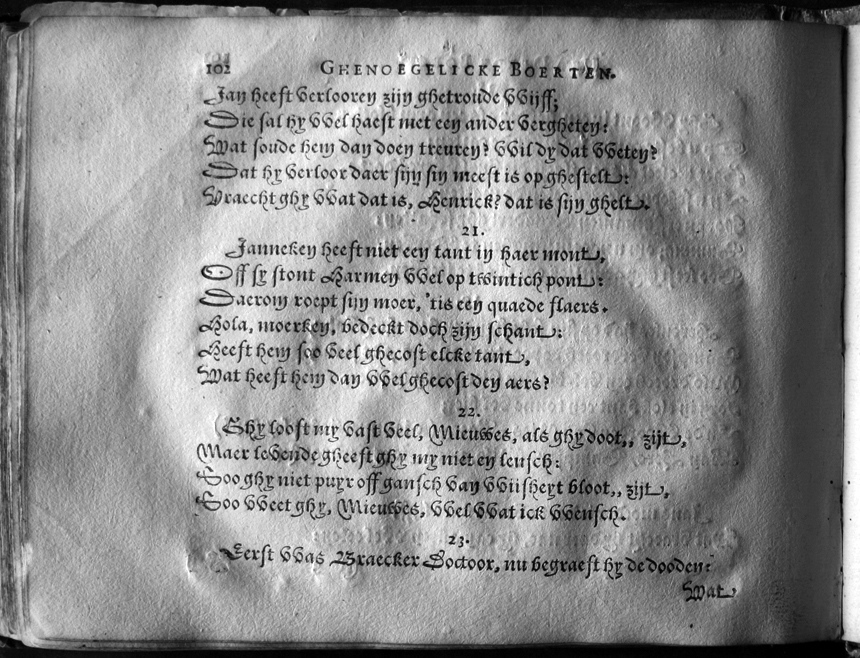 102 GHENOEGELICKE BOERTEN.
Jan heeft verlooren zijn ghetroude VVijff;
Die sal hy VVel haest met een ander vergheten:
Wat soude hem dan doen treuren? VVil dy dat VVeten?
Dat hy verloor daer sijn sin meest is op ghestelt:
Vraecht ghy VVat dat is, Henrick? dat is sijn ghelt.
21.
Janneken heeft niet een tant in haer mont,
Off sy stont Harmen VVel op twintich pont:
Daerom roept sijn moer, 'tis een quaede flaers.
Hola, moerken, bedeckt doch zijn schant:
Heeft hem soo veel ghecost elcke tant,
Wat heeft hem dan VVel ghecost den aers?
22.
Ghy looft my vast veel, Mieuwes, als ghy doot,, zijt,
Maer levende gheeft ghy my niet en leusch:
Soo ghy niet puyr off gansch van VViisheyt bloot,, zijt,
Soo VVeet ghy, Mieuwes, VVel VVat ick VVensch.
23.
Eerst VVas Braecker Doctoor, nu begraeft hy de dooden:
Wat